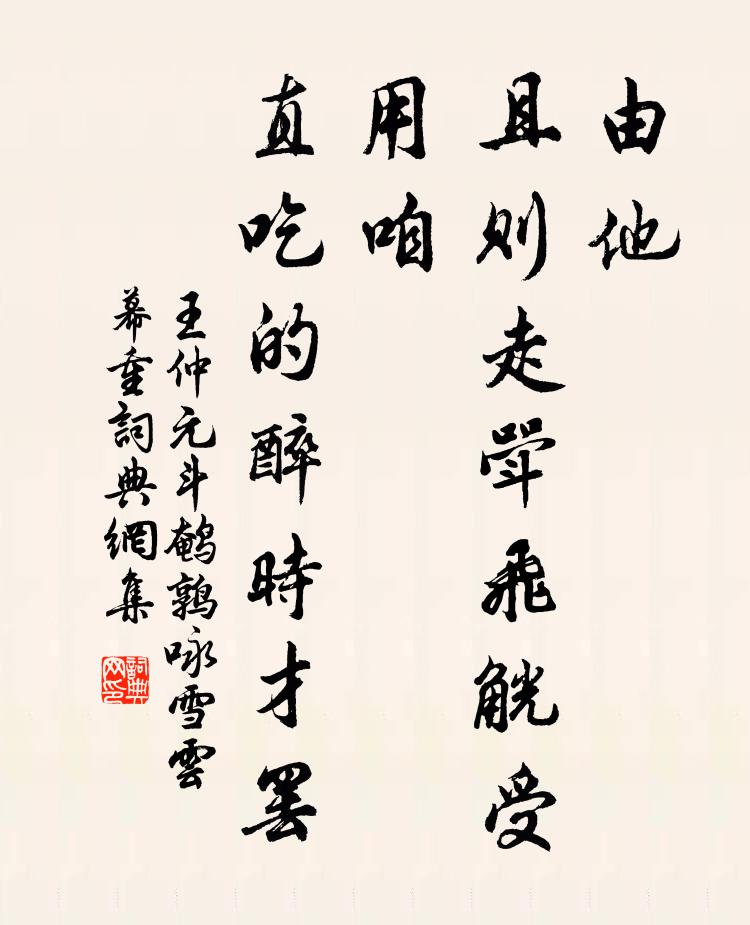 由他
且則走斝飛觥受
用咱
直吃的醉時才罷
王仲元斗鵪鶉咏雪雲
幕重詞典網集
詞典网印